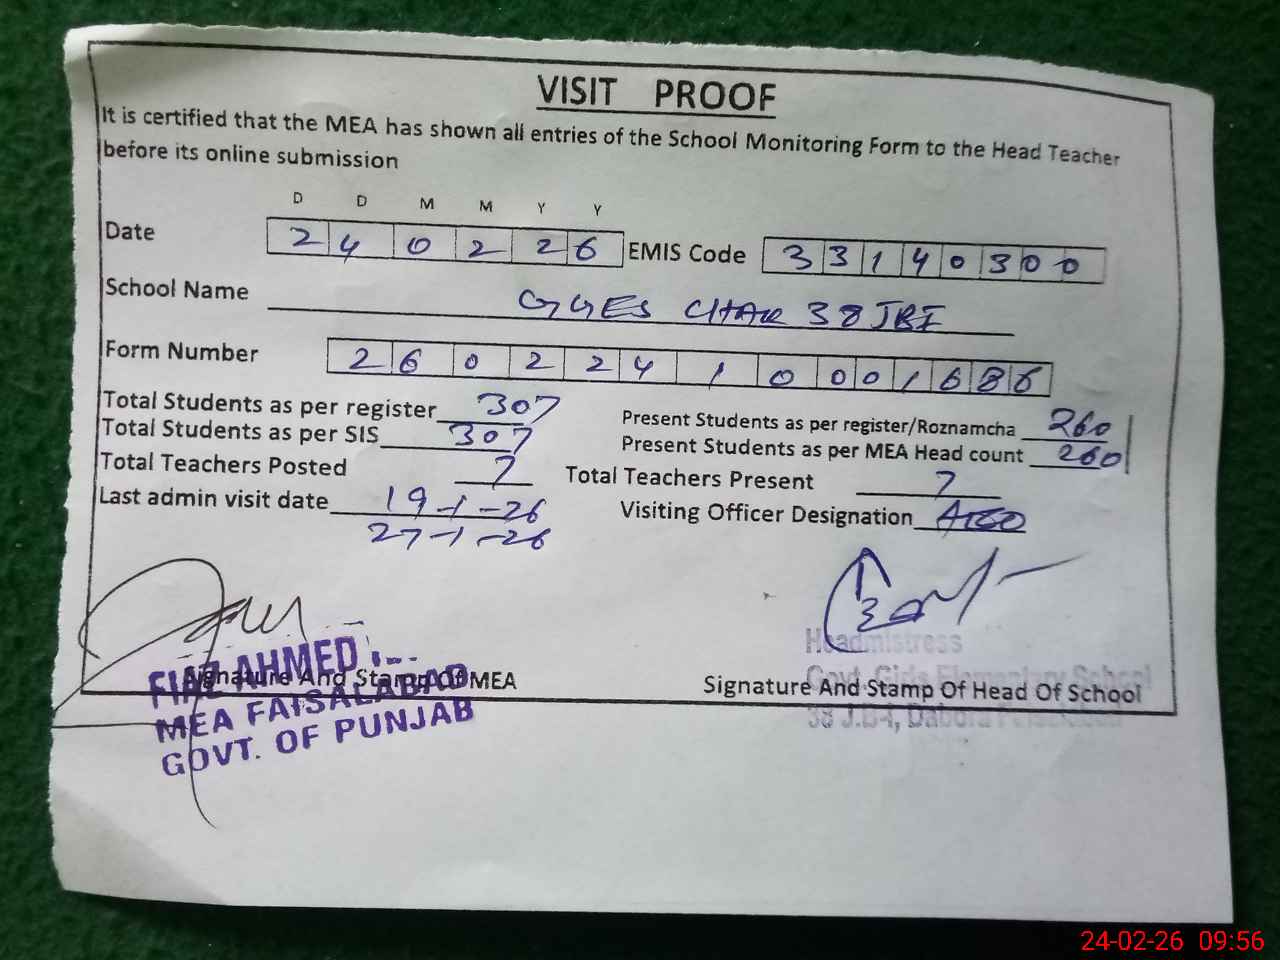 VISIT PROOF
It is certified that the MEA has shown all entries of the School Monitoring Form to the Head Teacher
before its online submission
D D M M Y Y
Date 2 4 0 2 2 6 EMIS Code 3 3 1 4 0 3 0 0
School Name GGES CHAK 38 JBI
Form Number 2 6 0 2 2 4 1 0 0 0 1 6 8 6
Total Students as per register 307 Present Students as per register/Roznamcha 260
Total Students as per SIS 307 Present Students as per MEA Head count 260
Total Teachers Posted 7 Total Teachers Present 7
Last admin visit date 19-1-26 Visiting Officer Designation AEO
27-1-26
Headmistress
FIAZ AHMED
Govt. Girls Elementary School
Signature And Stamp Of MEA Signature And Stamp Of Head Of School
MEA FAISALABAD
38 J.B-I,
GOVT. OF PUNJAB
24-02-26 09:56